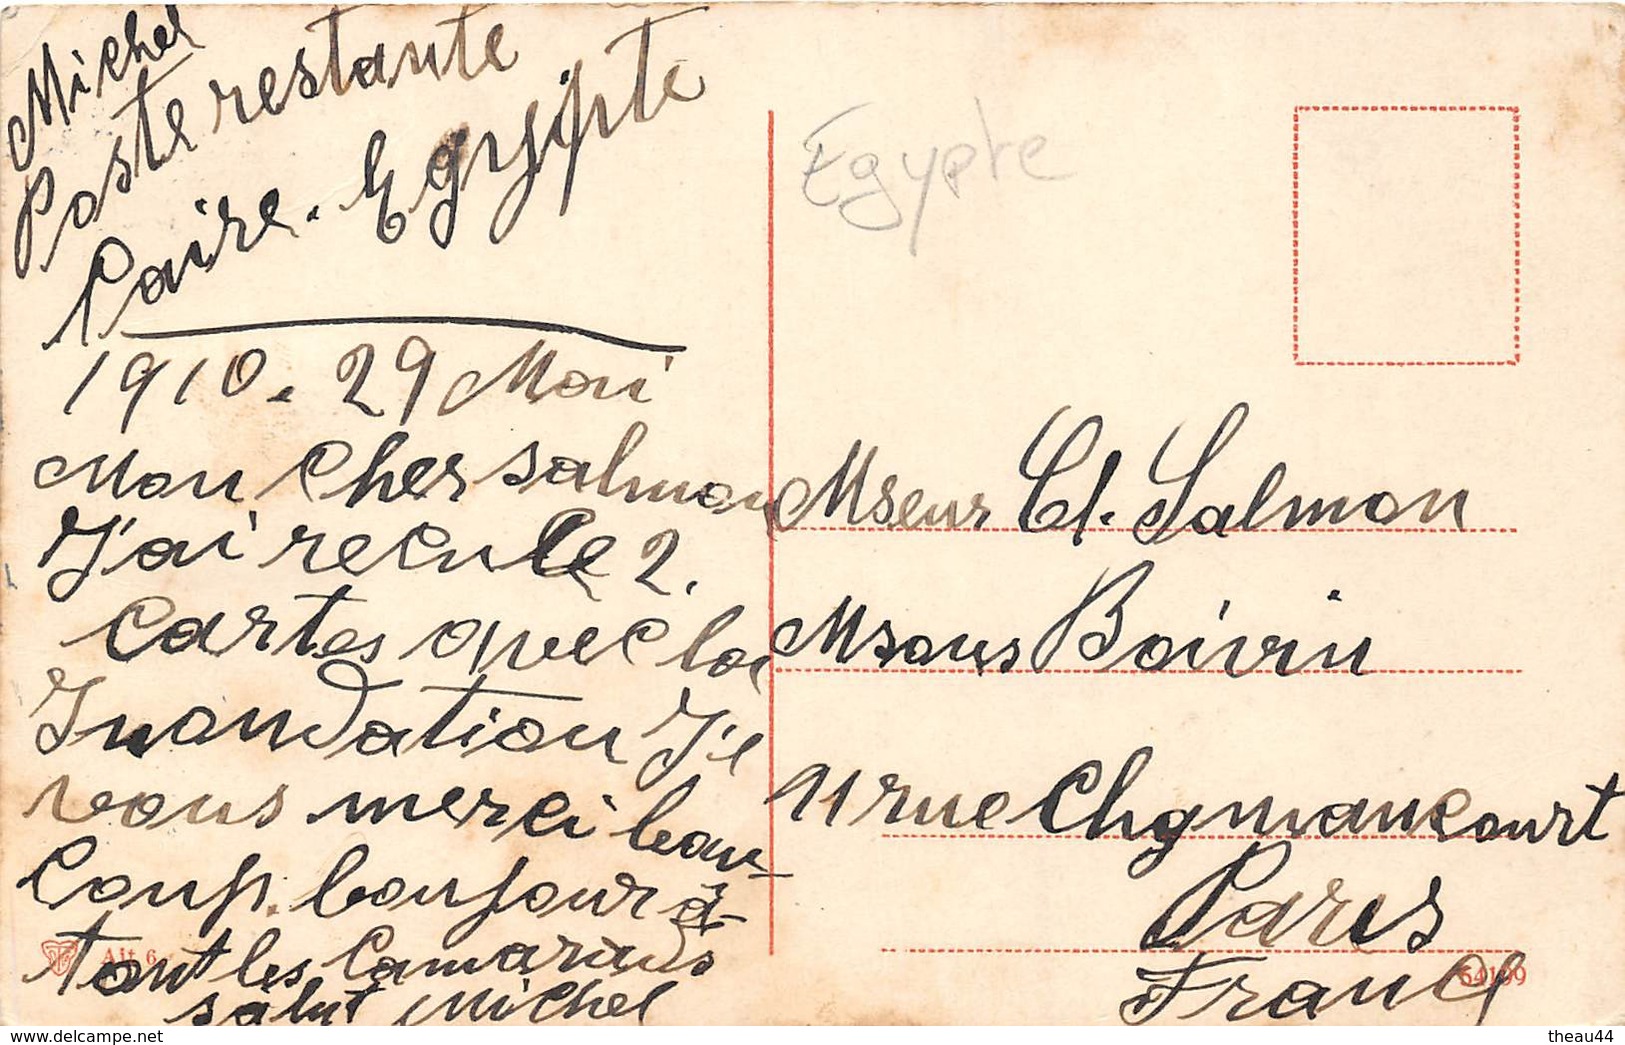 Michel
Poste restante
Caire. Egypte
1910. 29 Mai
Mon cher Salmon
J'ai recu le 2.
cartes avec la
Inondation J'e
vous merci beau-
coup. bonjour à
tout les camarads
salut Michel
Egypte
Mseur Cl. Salmon
Msons Boivin
11 rue Chgmancourt
Paris
France
Ait 6
64199
theau44